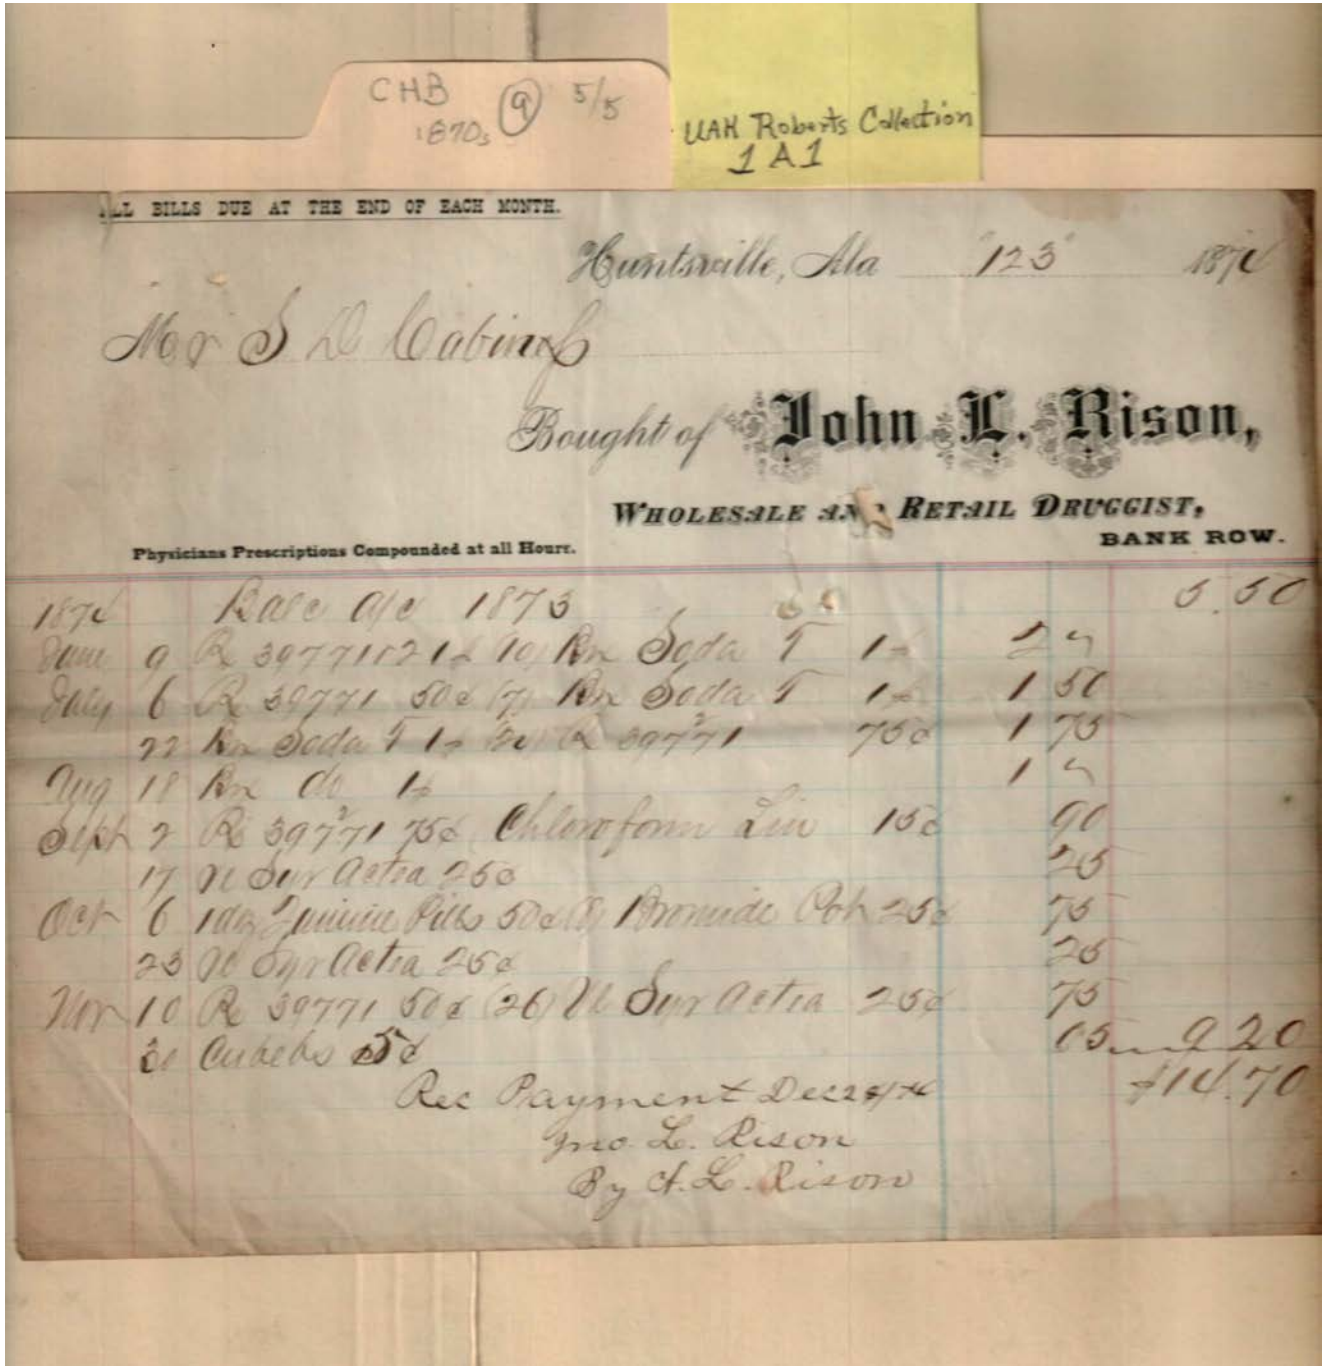 CHB 9 5/5
1870s
UAH Roberts Collection
1 A 1
ALL BILLS DUE AT THE END OF EACH MONTH.
Huntsville, Ala "123" 1874
Mr S D Cabiness
Bought of John L. Rison,
WHOLESALE AND RETAIL DRUGGIST,
BANK ROW.
Physicians Prescriptions Compounded at all Hours.
1874 Balc a/c 1873 5.50
June 9 Rx 39771 Soda T
July 6 Rx 39771 50¢ (7) Soda T 1 50
22 Soda T Rx 39771 75¢ 1 75
Aug 18 do
Sept 2 Rx 39771 75¢ Chloroform Lin 15¢ 90
17 Syr Actea 25¢ 25
Oct 6 1 doz Quinine Pills 50¢ Bromide Pot 25¢ 75
23 Syr Actea 25¢ 25
Nov 10 Rx 39771 50¢ (26) Syr Actea 25¢ 75
Cubebs 5¢ 05 9 20
Rec Payment Dec 28/74 $14.70
Jno L. Rison
By A. L. Rison